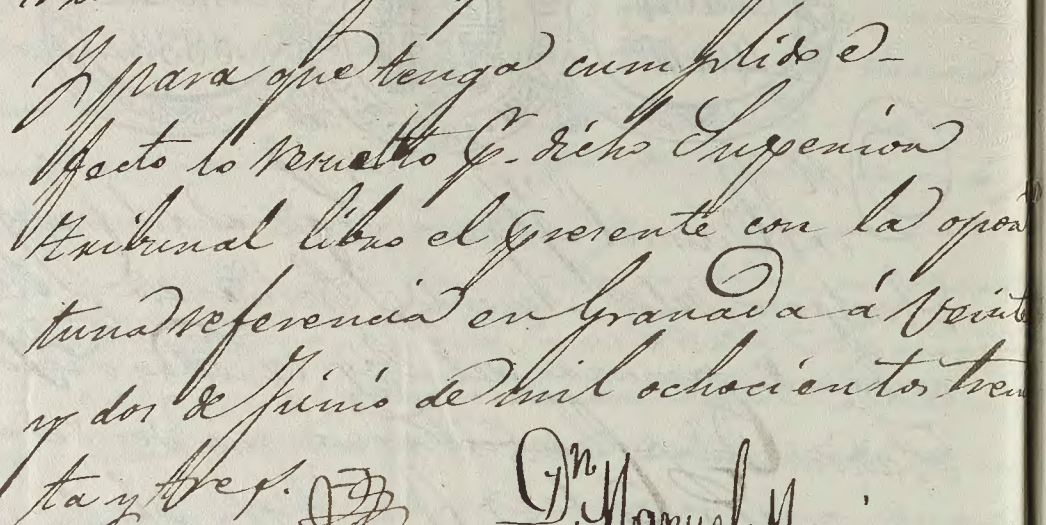 Y para que tenga cumplido e-
fecto lo resuelto p.r dicho Superior
tribunal libro el presente con la opor
tuna referencia en Granada á veinte
y dos de Junio de mil ochocientos trein
ta y tres.
D.n Manuel